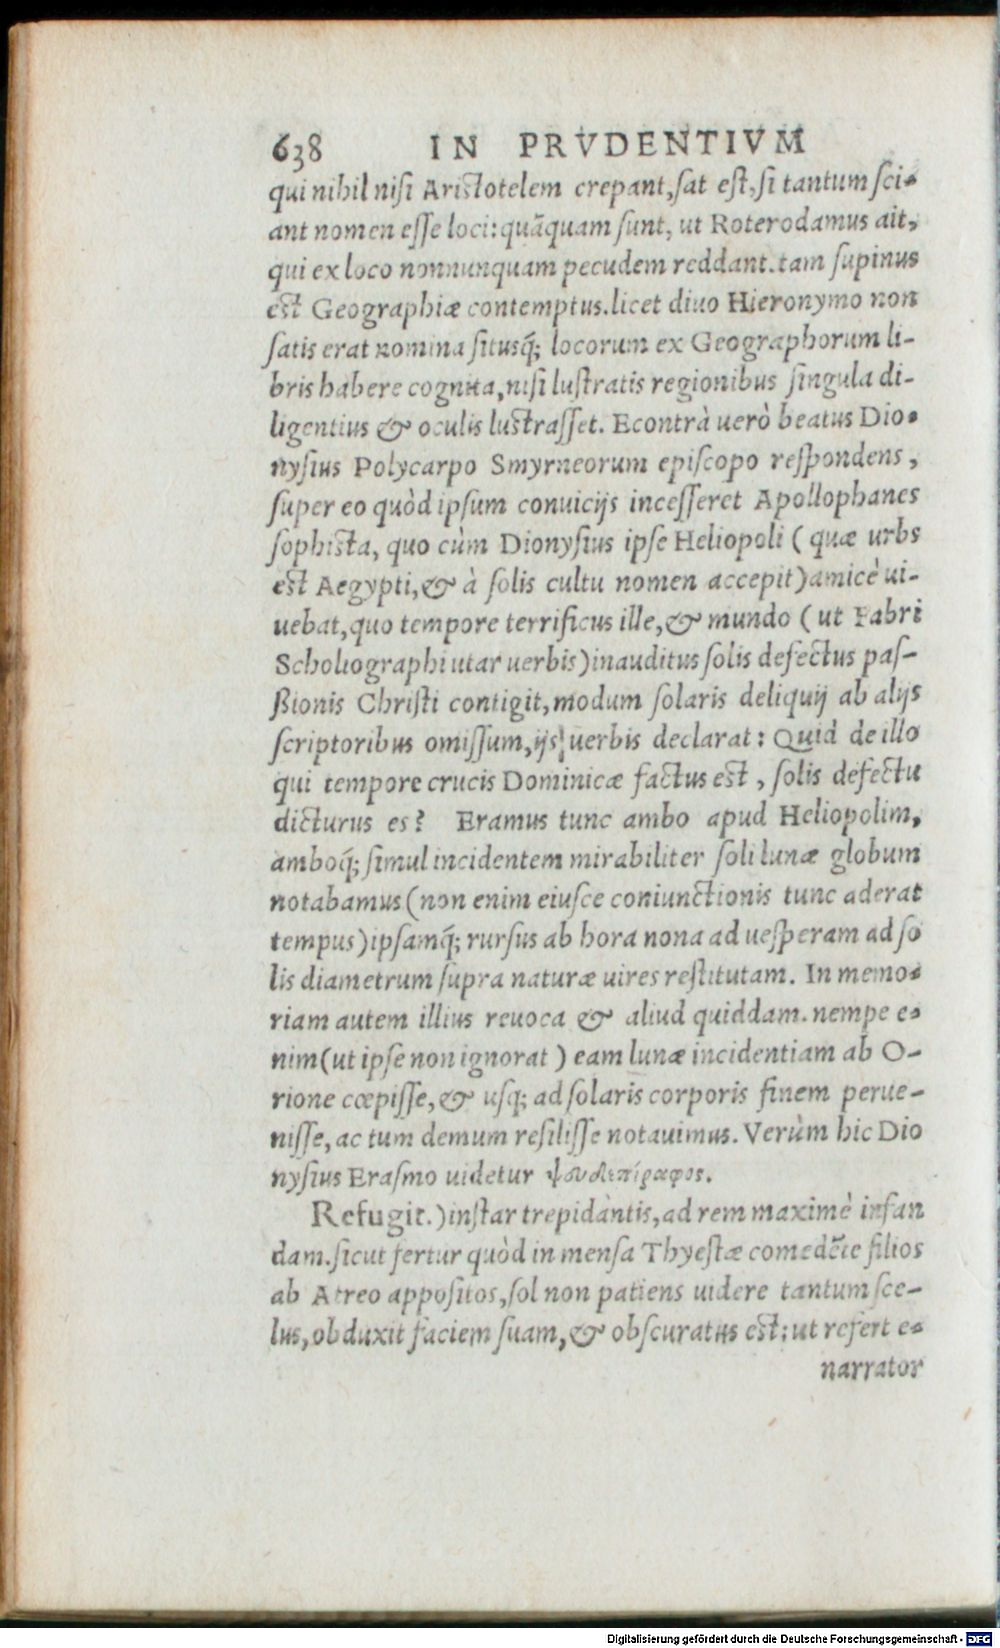 638 IN PRVDENTIVM
qui nihil niſi Ariſtotelem crepant, ſat eſt, ſi tantum ſci-
ant nomen eſſe loci: quãquam ſunt, ut Roterodamus ait,
qui ex loco nonnunquam pecudem reddant. tam ſupinus
eſt Geographiæ contemptus. licet diuo Hieronymo non
ſatis erat nomina ſitusq́; locorum ex Geographorum li-
bris habere cognita, niſi luſtratis regionibus ſingula di-
ligentius & oculis luſtraſſet. Econtrà uerò beatus Dio-
nyſius Polycarpo Smyrneorum epiſcopo reſpondens,
ſuper eo quòd ipſum conuicijs inceſſeret Apollophanes
ſophiſta, quo cùm Dionyſius ipſe Heliopoli (quæ urbs
eſt Aegypti, & à ſolis cultu nomen accepit) amicè ui-
uebat, quo tempore terrificus ille, & mundo (ut Fabri
Scholiographi utar uerbis) inauditus ſolis defectus paſ-
ßionis Chriſti contigit, modum ſolaris deliquij ab alijs
ſcriptoribus omiſſum, ijs uerbis declarat: Quid de illo
qui tempore crucis Dominicæ factus eſt, ſolis defectu
dicturus es? Eramus tunc ambo apud Heliopolim,
amboq́; ſimul incidentem mirabiliter ſoli lunæ globum
notabamus (non enim eiuſce coniunctionis tunc aderat
tempus) ipſamq́; rurſus ab hora nona ad ueſperam ad ſo
lis diametrum ſupra naturæ uires reſtitutam. In memo-
riam autem illius reuoca & aliud quiddam. nempe e-
nim (ut ipſe non ignorat) eam lunæ incidentiam ab O-
rione cœpiſſe, & uſq; ad ſolaris corporis finem perue-
niſſe, ac tum demum reſiliſſe notauimus. Verùm hic Dio
nyſius Eraſmo uidetur ψουδεπίγραφος.
Refugit.) inſtar trepidàntis, ad rem maximè infan
dam. ſicut fertur quòd in menſa Thyeſtæ comedẽte filios
ab Atreo appoſitos, ſol non patiens uidere tantum ſce-
lus, obduxit faciem ſuam, & obſcuratus eſt: ut refert e-
narrator
Digitalisierung gefördert durch die Deutsche Forschungsgemeinschaft - DFG